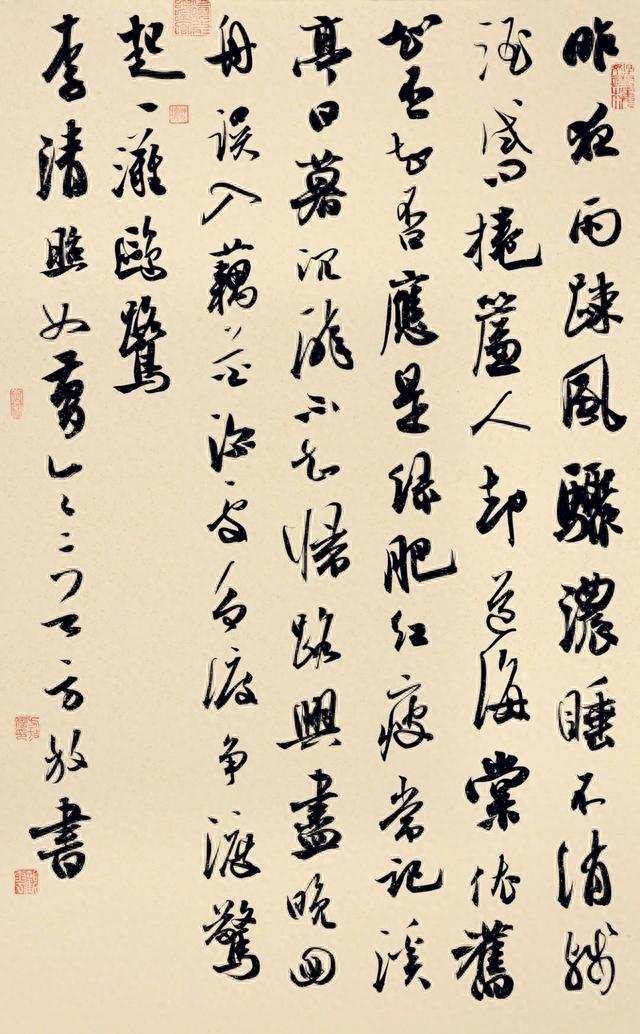 昨夜雨疎風驟濃睡不消殘
酒試問捲簾人却道海棠依舊
知否知否應是緑肥紅瘦常記溪
亭日暮沉醉不知歸路興盡晚回
舟誤入藕花深處争渡争渡驚
起一灘鷗鷺
李清照如夢方放書